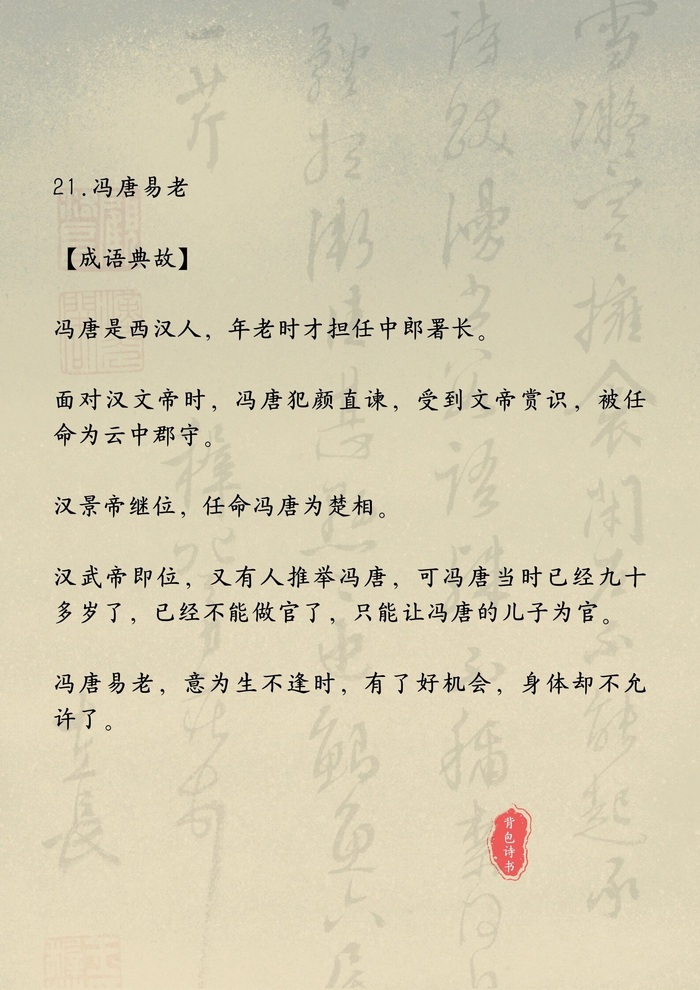 21.冯唐易老
【成语典故】
冯唐是西汉人，年老时才担任中郎署长。
面对汉文帝时，冯唐犯颜直谏，受到文帝赏识，被任
命为云中郡守。
汉景帝继位，任命冯唐为楚相。
汉武帝即位，又有人推举冯唐，可冯唐当时已经九十
多岁了，已经不能做官了，只能让冯唐的儿子为官。
冯唐易老，意为生不逢时，有了好机会，身体却不允
许了。
背包诗书